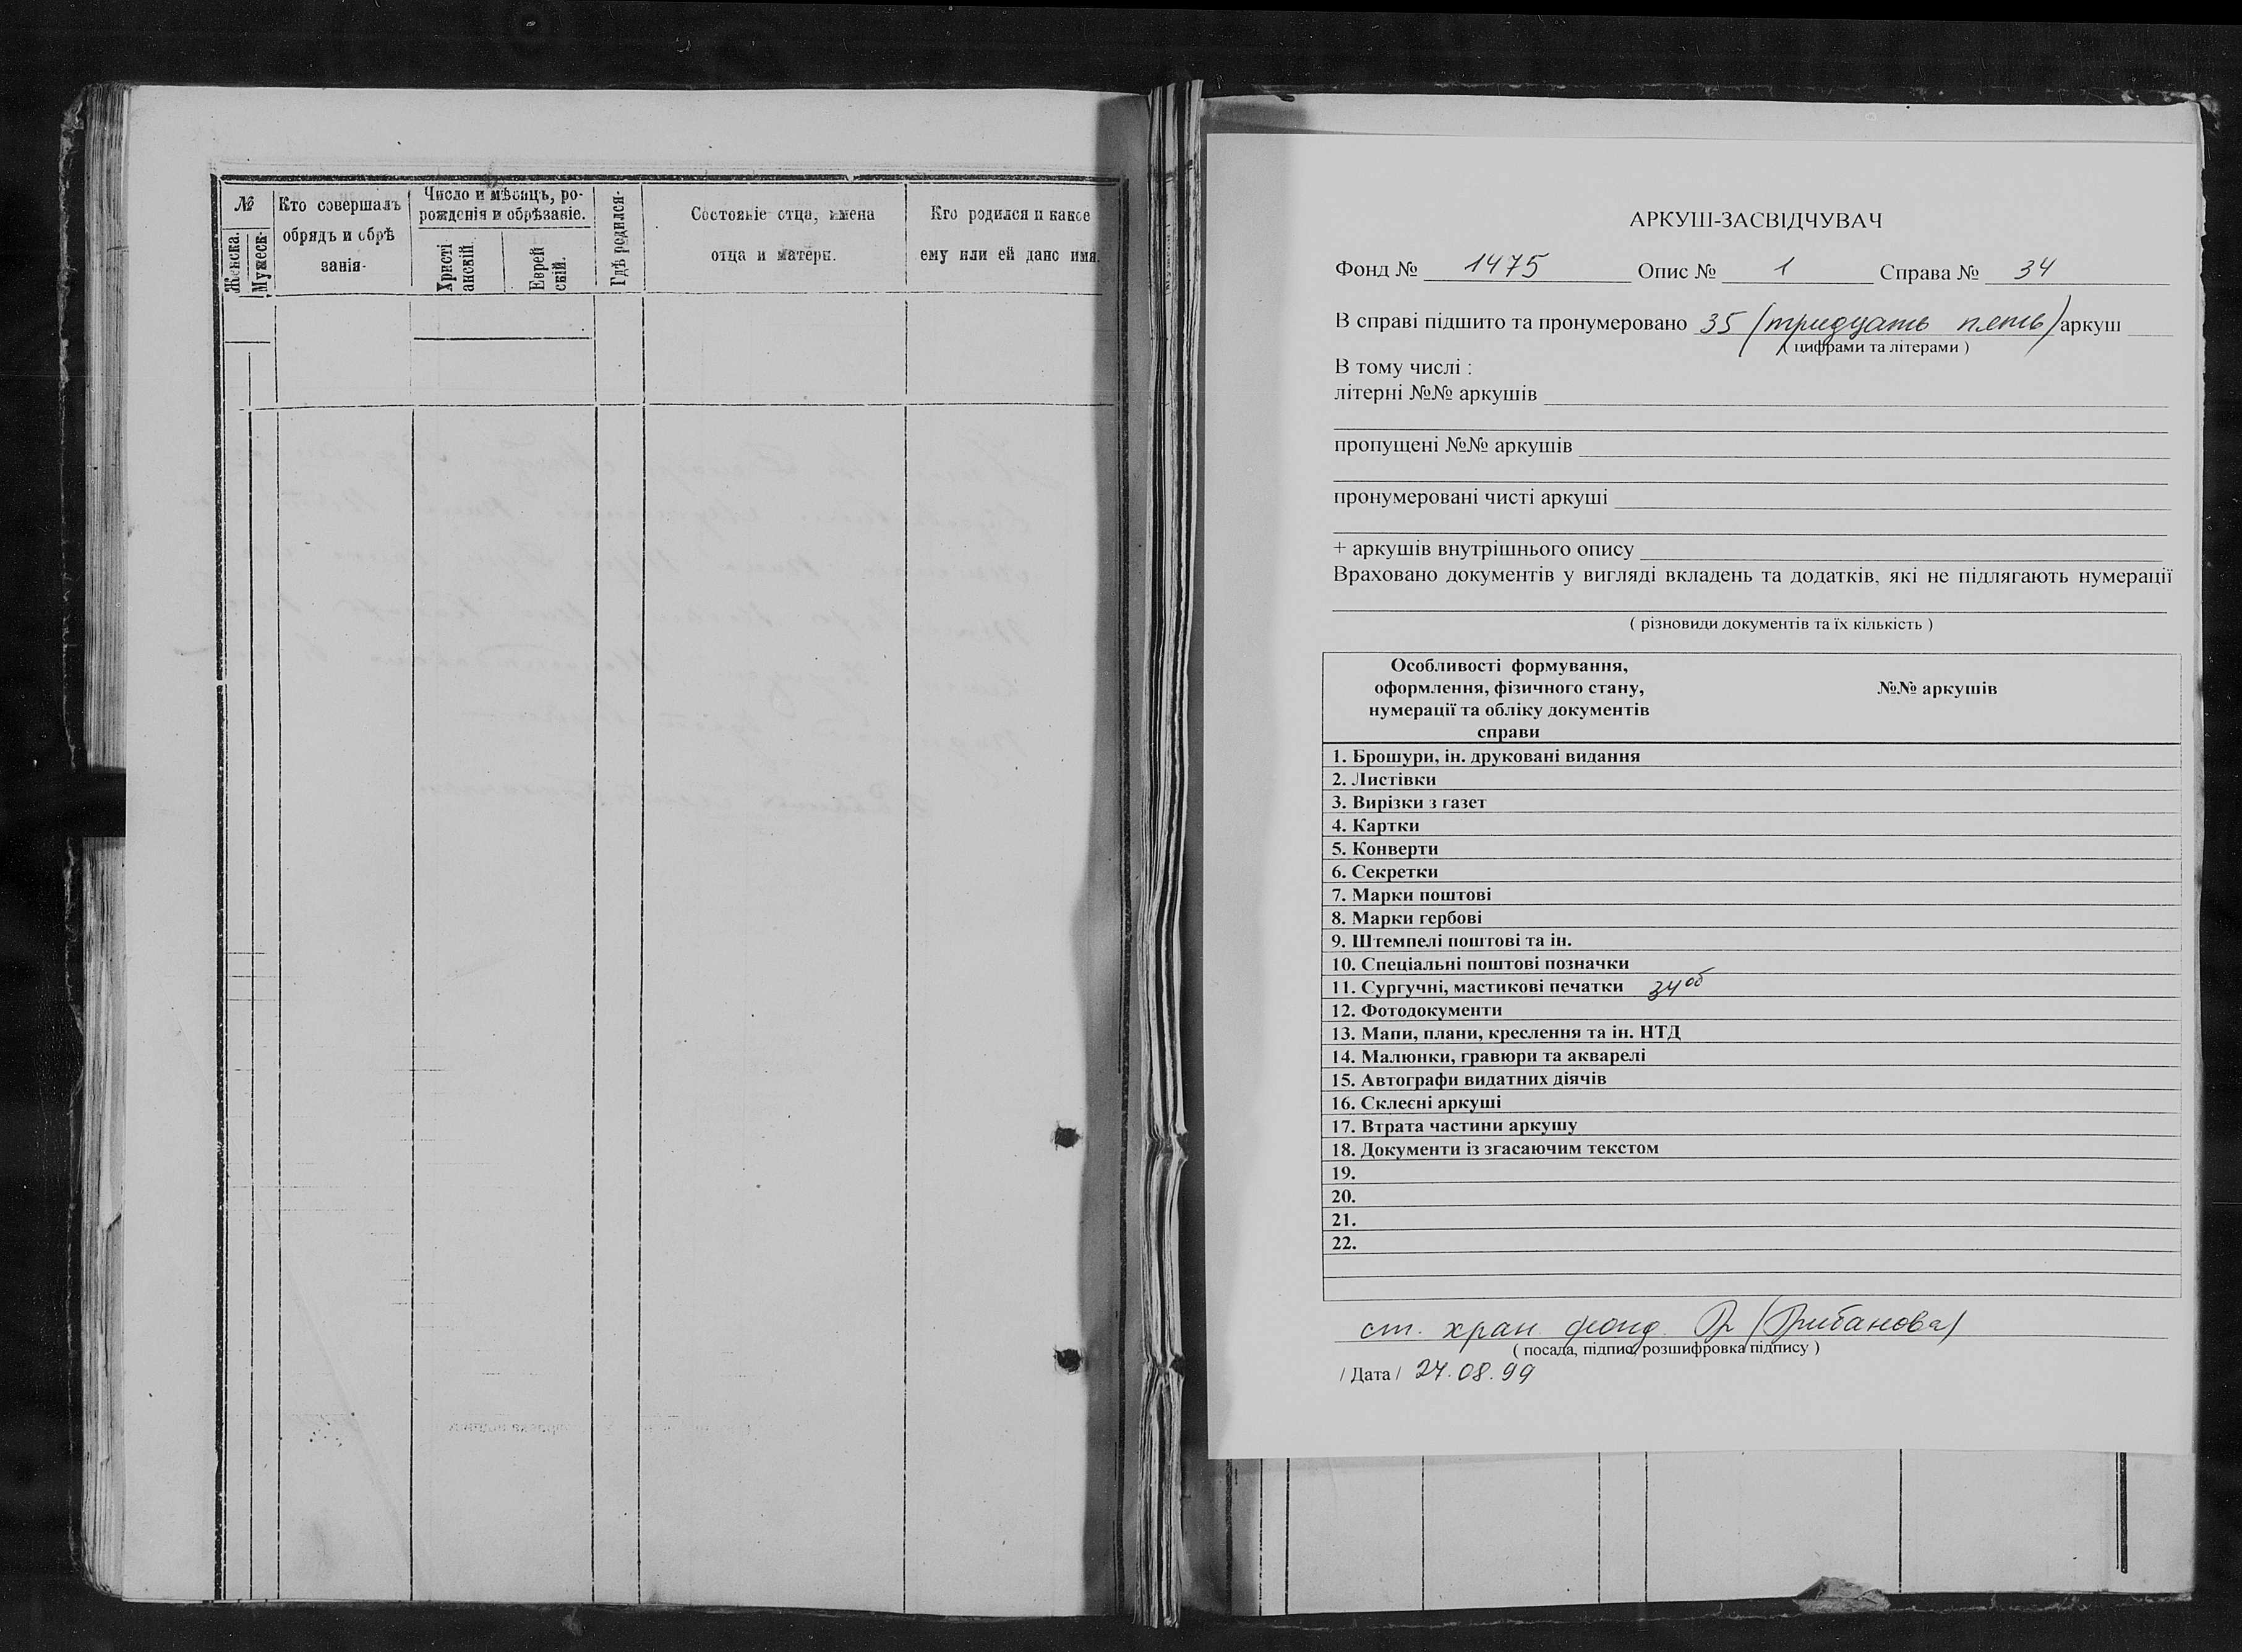 №
Женска.
Мужеск.
Кто совершалъ
обрядъ и обрѣ
занія.
Число и мѣсяцъ, ро-
рожденія и обрѣзаніе.
Христі
анскій.
Еврей
скій.
Гдѣ родился.
Состояніе отца, имена
отца и матери.
Кто родился и какое
ему или ей дано имя.
АРКУШ-ЗАСВІДЧУВАЧ
Фонд № 1475 Опис № 1 Справа № 34
В справі підшито та пронумеровано 35 (тридцать пять) аркуш
( цифрами та літерами )
В тому числі :
літерні №№ аркушів
пропущені №№ аркушів
пронумеровані чисті аркуші
+ аркушів внутрішнього опису
Враховано документів у вигляді вкладень та додатків, які не підлягають нумерації
( різновиди документів та їх кількість )
Особливості формування,
оформлення, фізичного стану,
нумерації та обліку документів
справи
№№ аркушів
1. Брошури, ін. друковані видання
2. Листівки
3. Вирізки з газет
4. Картки
5. Конверти
6. Секретки
7. Марки поштові
8. Марки гербові
9. Штемпелі поштові та ін.
10. Спеціальні поштові позначки
11. Сургучні, мастикові печатки 34об
12. Фотодокументи
13. Мапи, плани, креслення та ін. НТД
14. Малюнки, гравюри та акварелі
15. Автографи видатних діячів
16. Склеєні аркуші
17. Втрата частини аркушу
18. Документи із згасаючим текстом
19.
20.
21.
22.
ст. хран. фонд. (Грибанова)
( посада, підпис, розшифровка підпису )
/ Дата / 27.08.99